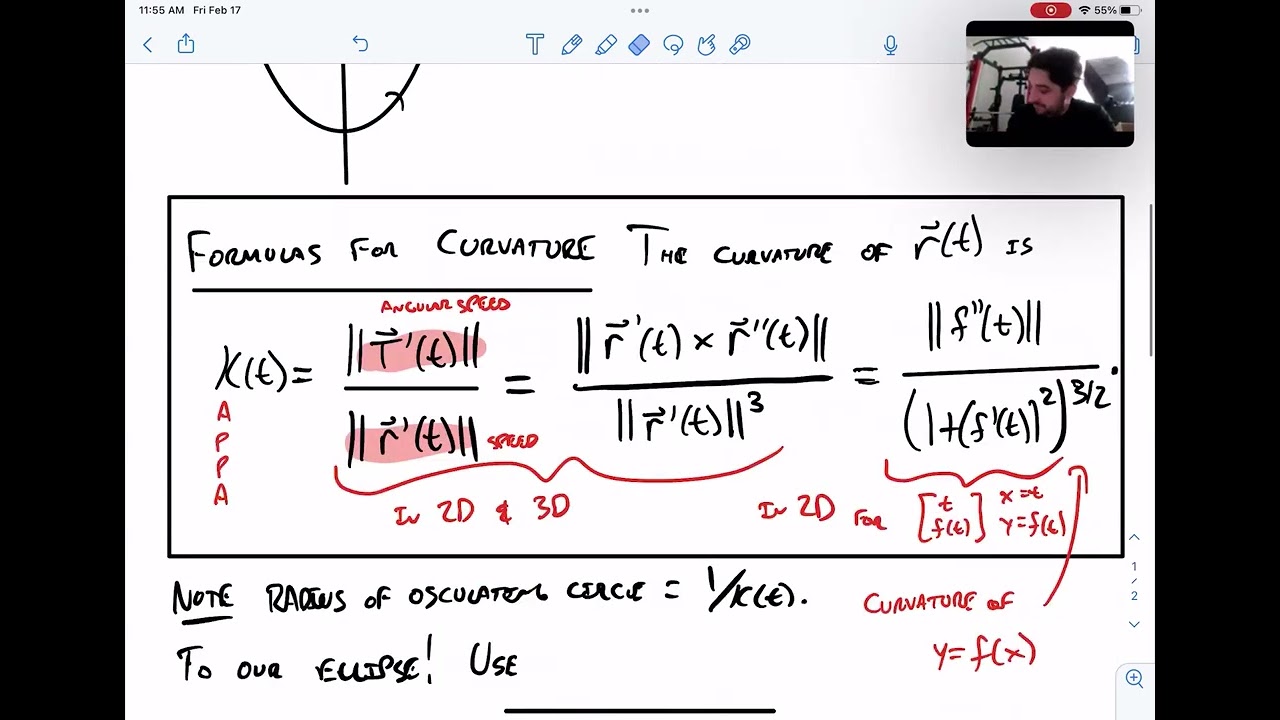 11:55 AM Fri Feb 17
55%
FORMULAS FOR CURVATURE THE CURVATURE OF r⃗(t) IS
ANGULAR SPEED
K(t) = ||T⃗'(t)|| / ||r⃗'(t)|| = ||r⃗'(t) × r⃗''(t)|| / ||r⃗'(t)||³ = ||f''(t)|| / (1+(f'(t)]²)^3/2.
SPEED
A
P
P
A
IN 2D & 3D
IN 2D FOR [t f(t)] x=t y=f(t)
NOTE RADIUS OF OSCULATENG CIRCLE = 1/K(t).
CURVATURE OF
y=f(x)
TO OUR ELLIPSE! USE
1
/
2